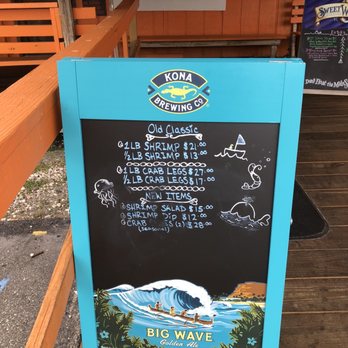 KONA
BREWING CO.
Old Classic
1 LB SHRIMP $21.00
½ LB SHRIMP $13.00
1 LB CRAB LEGS $27.00
½ LB CRAB LEGS $17.00
NEW ITEMS
SHRIMP SALAD $15.00
SHRIMP DIP $12.00
CRAB (2) $28.00
(SEASONAL)
BIG WAVE
Golden Ale
SWEETW